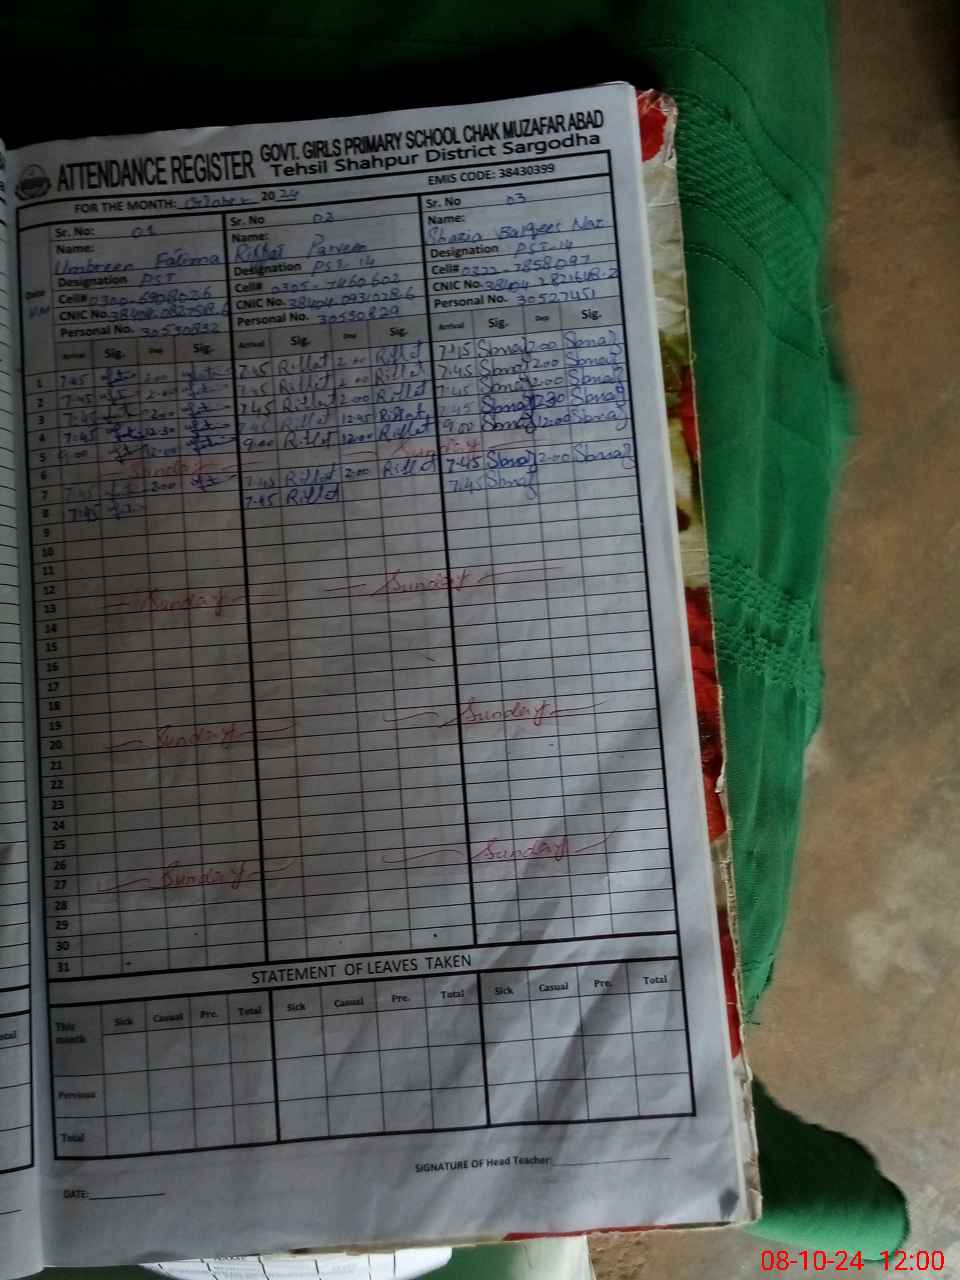 ATTENDANCE REGISTER
GOVT. GIRLS PRIMARY SCHOOL CHAK MUZAFAR ABAD
Tehsil Shahpur District Sargodha
FOR THE MONTH: October 2024
EMIS CODE: 38430399
Sr. No: 01 Sr. No 02 Sr. No 03
Name: Name: Name:
Umbreen Fatima Riffat Parveen Shazia Balqees Naz
Designation PST Designation PST-14 Designation PST-14
Date Cell# 0300-6908026 Cell# 0305-7460602 Cell# 0322-7858097
CNIC No. CNIC No. CNIC No.
Personal No. 30530832 Personal No. 30530829 Personal No. 30527451
Arrival Sig. Dep Sig. Arrival Sig. Dep Sig. Arrival Sig. Dep Sig.
1 7:45 2:00 7:45 Riffat 2:00 Riffat 7:45 Sbnaz 2:00 Sbnaz
2 7:45 2:00 7:45 Riffat 2:00 Riffat 7:45 Sbnaz 2:00 Sbnaz
3 7:45 2:00 7:45 Riffat 2:00 Riffat 7:45 Sbnaz 2:00 Sbnaz
4 7:45 12:30 7:45 Riffat Riffat 7:45 Sbnaz Sbnaz
5 9:00 12:00 9:00 Riffat 12:00 Riffat 9:00 Sbnaz 12:00 Sbnaz
6 Sunday Sunday
7 7:45 2:00 7:45 Riffat 2:00 Riffat 7:45 Sbnaz 2:00 Sbnaz
8 7:45 7:45 Riffat 7:45 Sbnaz
9
10
11
12
13 Sunday Sunday
14
15
16
17
18
19
20 Sunday Sunday
21
22
23
24
25
26
27 Sunday Sunday
28
29
30
31
STATEMENT OF LEAVES TAKEN
Sick Casual Pre. Total Sick Casual Pre. Total Sick Casual Pre. Total
This month
Pervious
Total
SIGNATURE OF Head Teacher:
DATE:
08-10-24 12:00